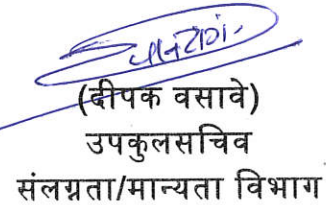 (दीपक वसावे)
उपकुलसचिव
संलग्नता/मान्यता विभाग